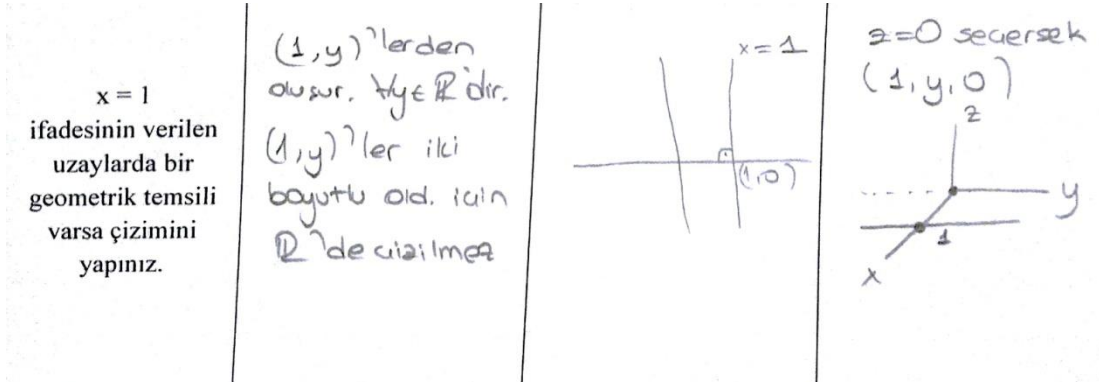 x = 1
ifadesinin verilen
uzaylarda bir
geometrik temsili
varsa çizimini
yapınız.
(1,y)'lerden
oluşur. ∀y∈ℝ'dir.
(1,y)'ler iki
boyutlu old. için
ℝ'de çizilmez
x=1
(1,0)
z=0 seçersek
(1,y,0)
z
y
1
x